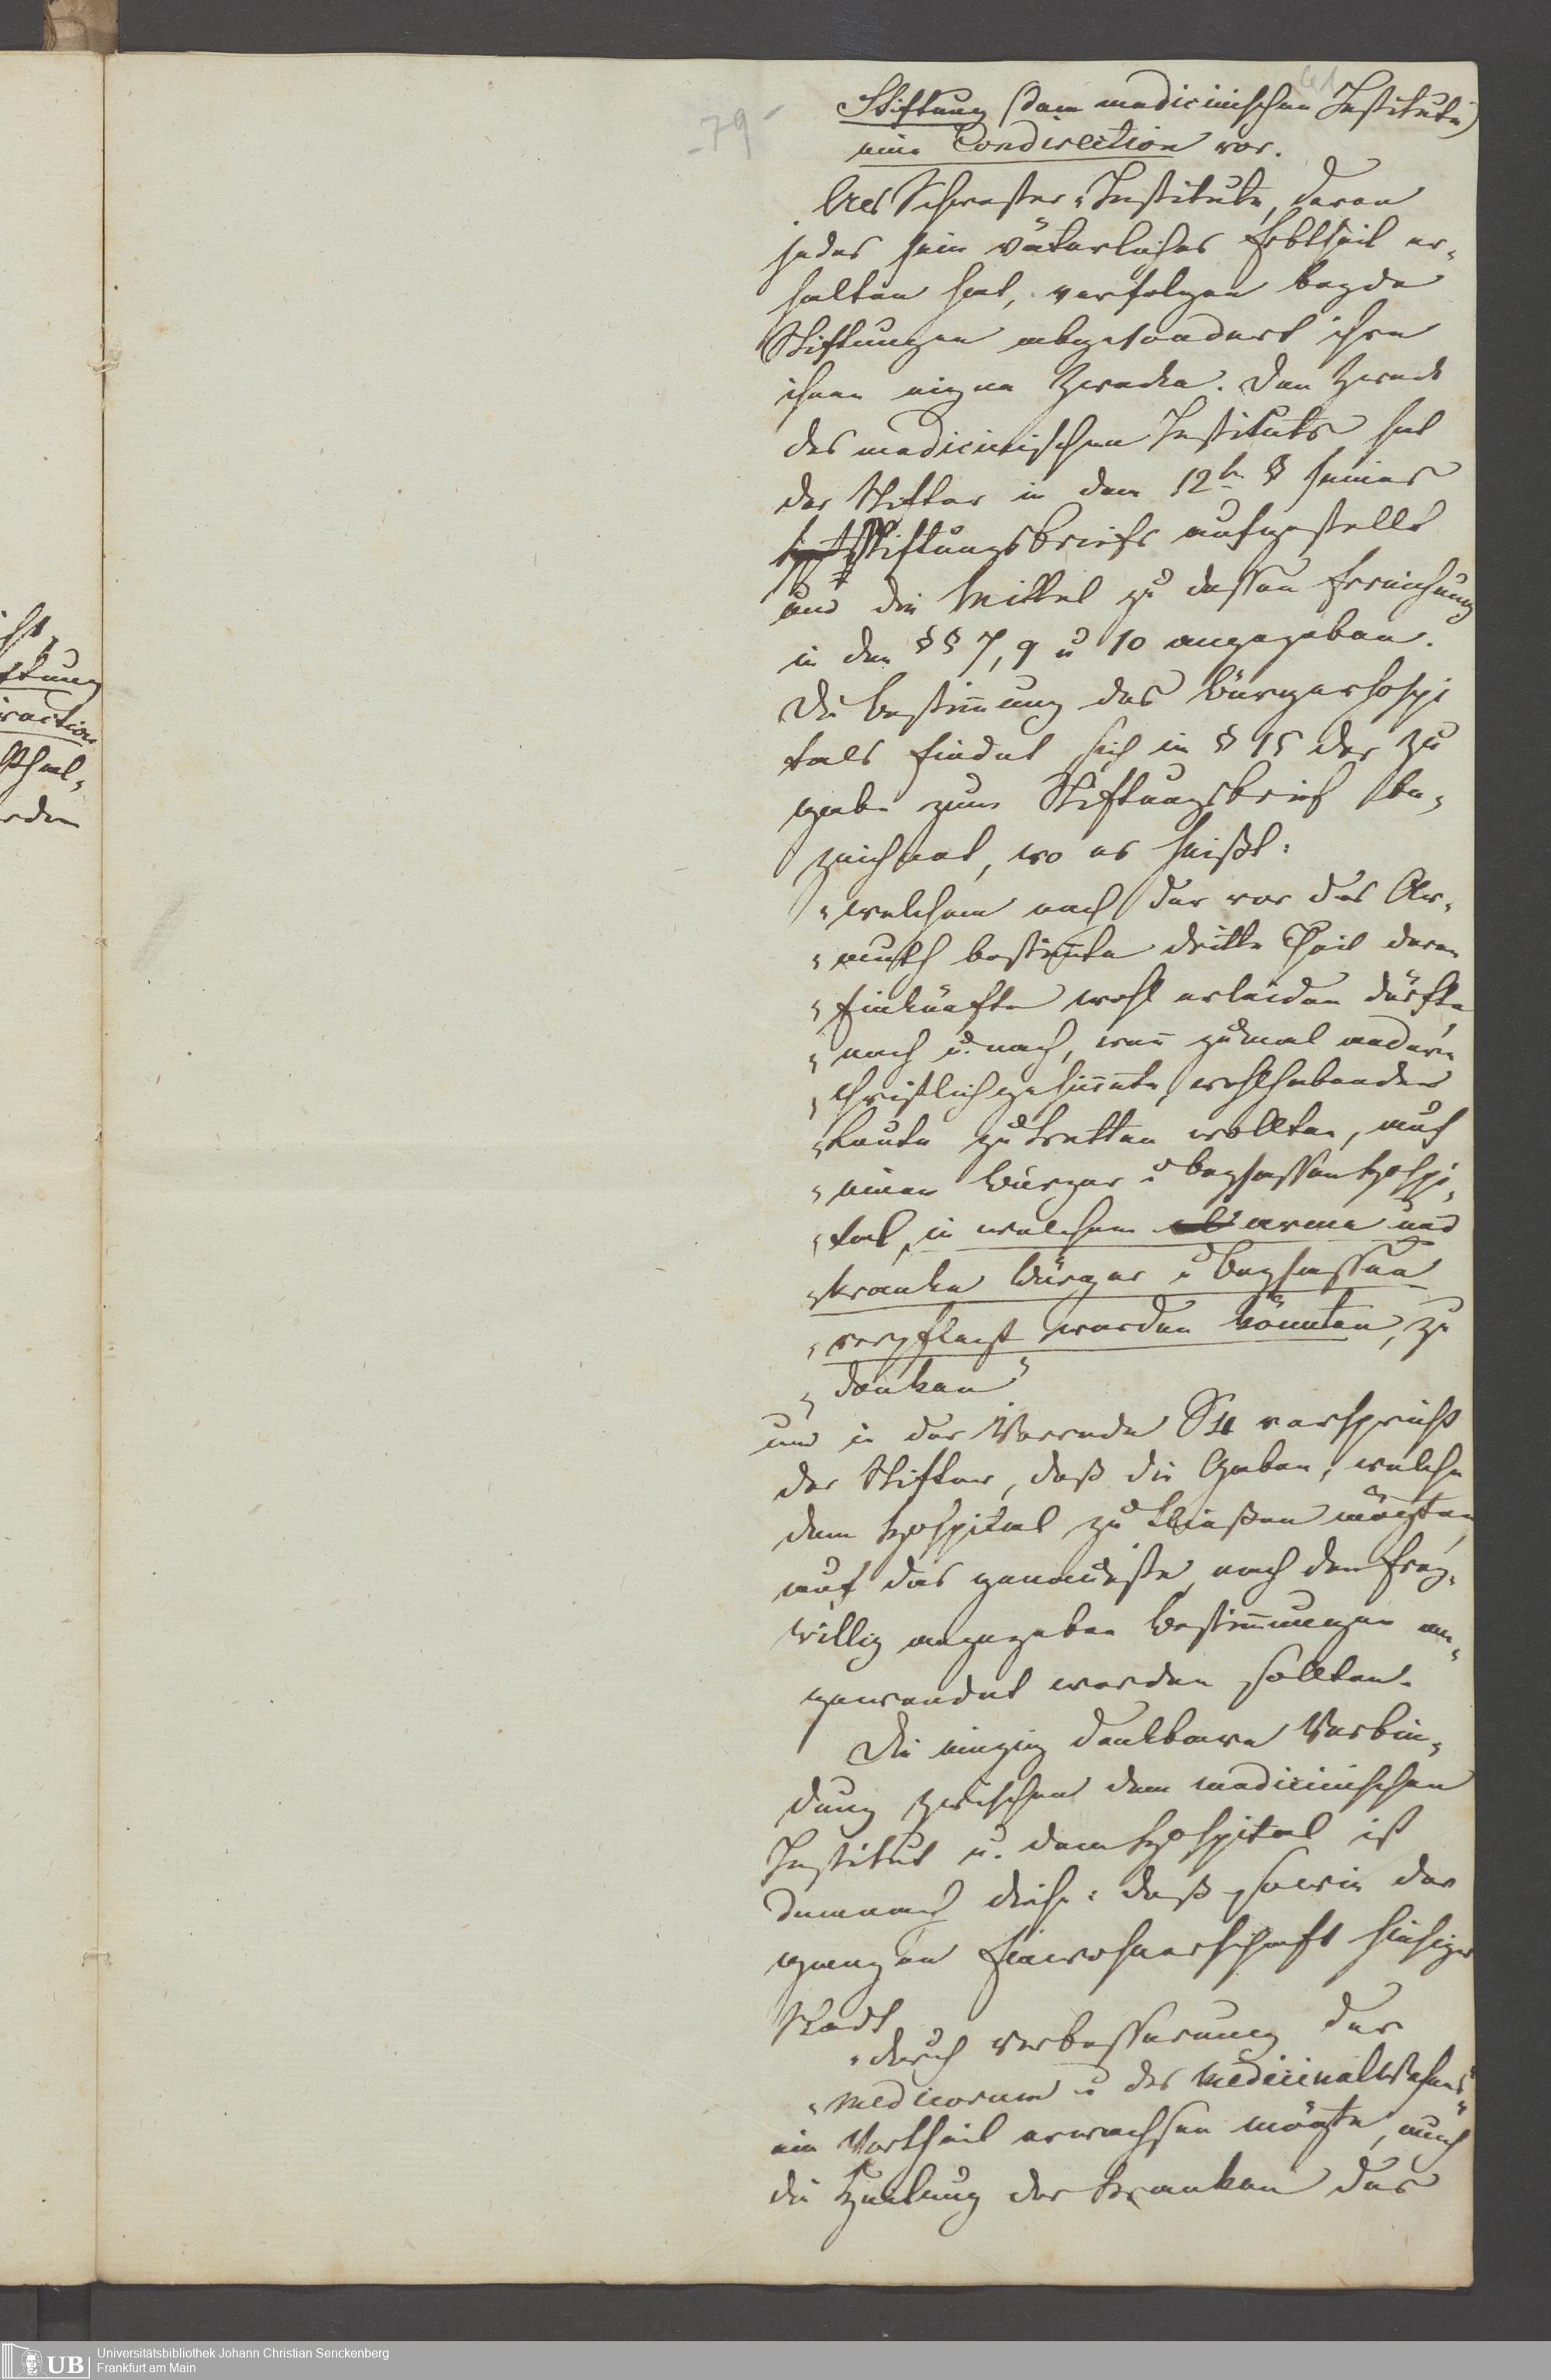 61
-79-
Stiftung (dem medicinischen Institute)
eine Condirection vor.
Als Schwester-Institute, deren
jedes sein väterliches Erbtheil er-
halten hat, verfolgen beyde
Stiftungen abgesondert ihre
ihnen eignen Zwecke. Den Zweck
des medicinischen Instituts hat
der Stifter in dem 12tn § seines
Stiftungsbriefs aufgestellt
und die Mittel zu dessen Erreichung
in den §§ 7, 9 u 10 angegeben.
Die Bestim̅ung des Bürgerhospi
tals findet sich in § 15 der Zu
gabe zum Stiftungsbrief be-
zeichnet, wo es heißt:
"welchem nach der vor das Ar-
"muth bestim̅te dritte Theil deren
"Einkünfte wohl erleiden dürfte,
"nach u. nach, wen̅ zumal andere
"christlich gesin̅te, wohlhabende
"Leute zutretten wollten, auf
"einen Bürger u Beysassen Hospi-
"tal, in welchem arme und
"kranke Bürger u Beysassen
"verpflegt werden könnten, zu
"denken"
und in der Vorrede S 4 verspricht
der Stifter, daß die Gaben, welche
dem Hospital zu fließen mögten,
auf das genaueste, nach den frey-
willig angegeben Bestim̅ungen an-
gewendet werden sollten.
Die einzig denkbare Verbin-
dung zwischen dem medicinischen
Institut u. dem Hospital ist
demnach diese: daß sowie der
ganzen Einwohnerschaft hiesiger
Stadt
"durch Verbesserung der
"Medicorum u des Medicinal Wesens"
ein Vortheil erwachsen mögte, auch
die Heilung der Kranken des
ftung
rection
rden
UB Universitätsbibliothek Johann Christian Senckenberg
Frankfurt am Main